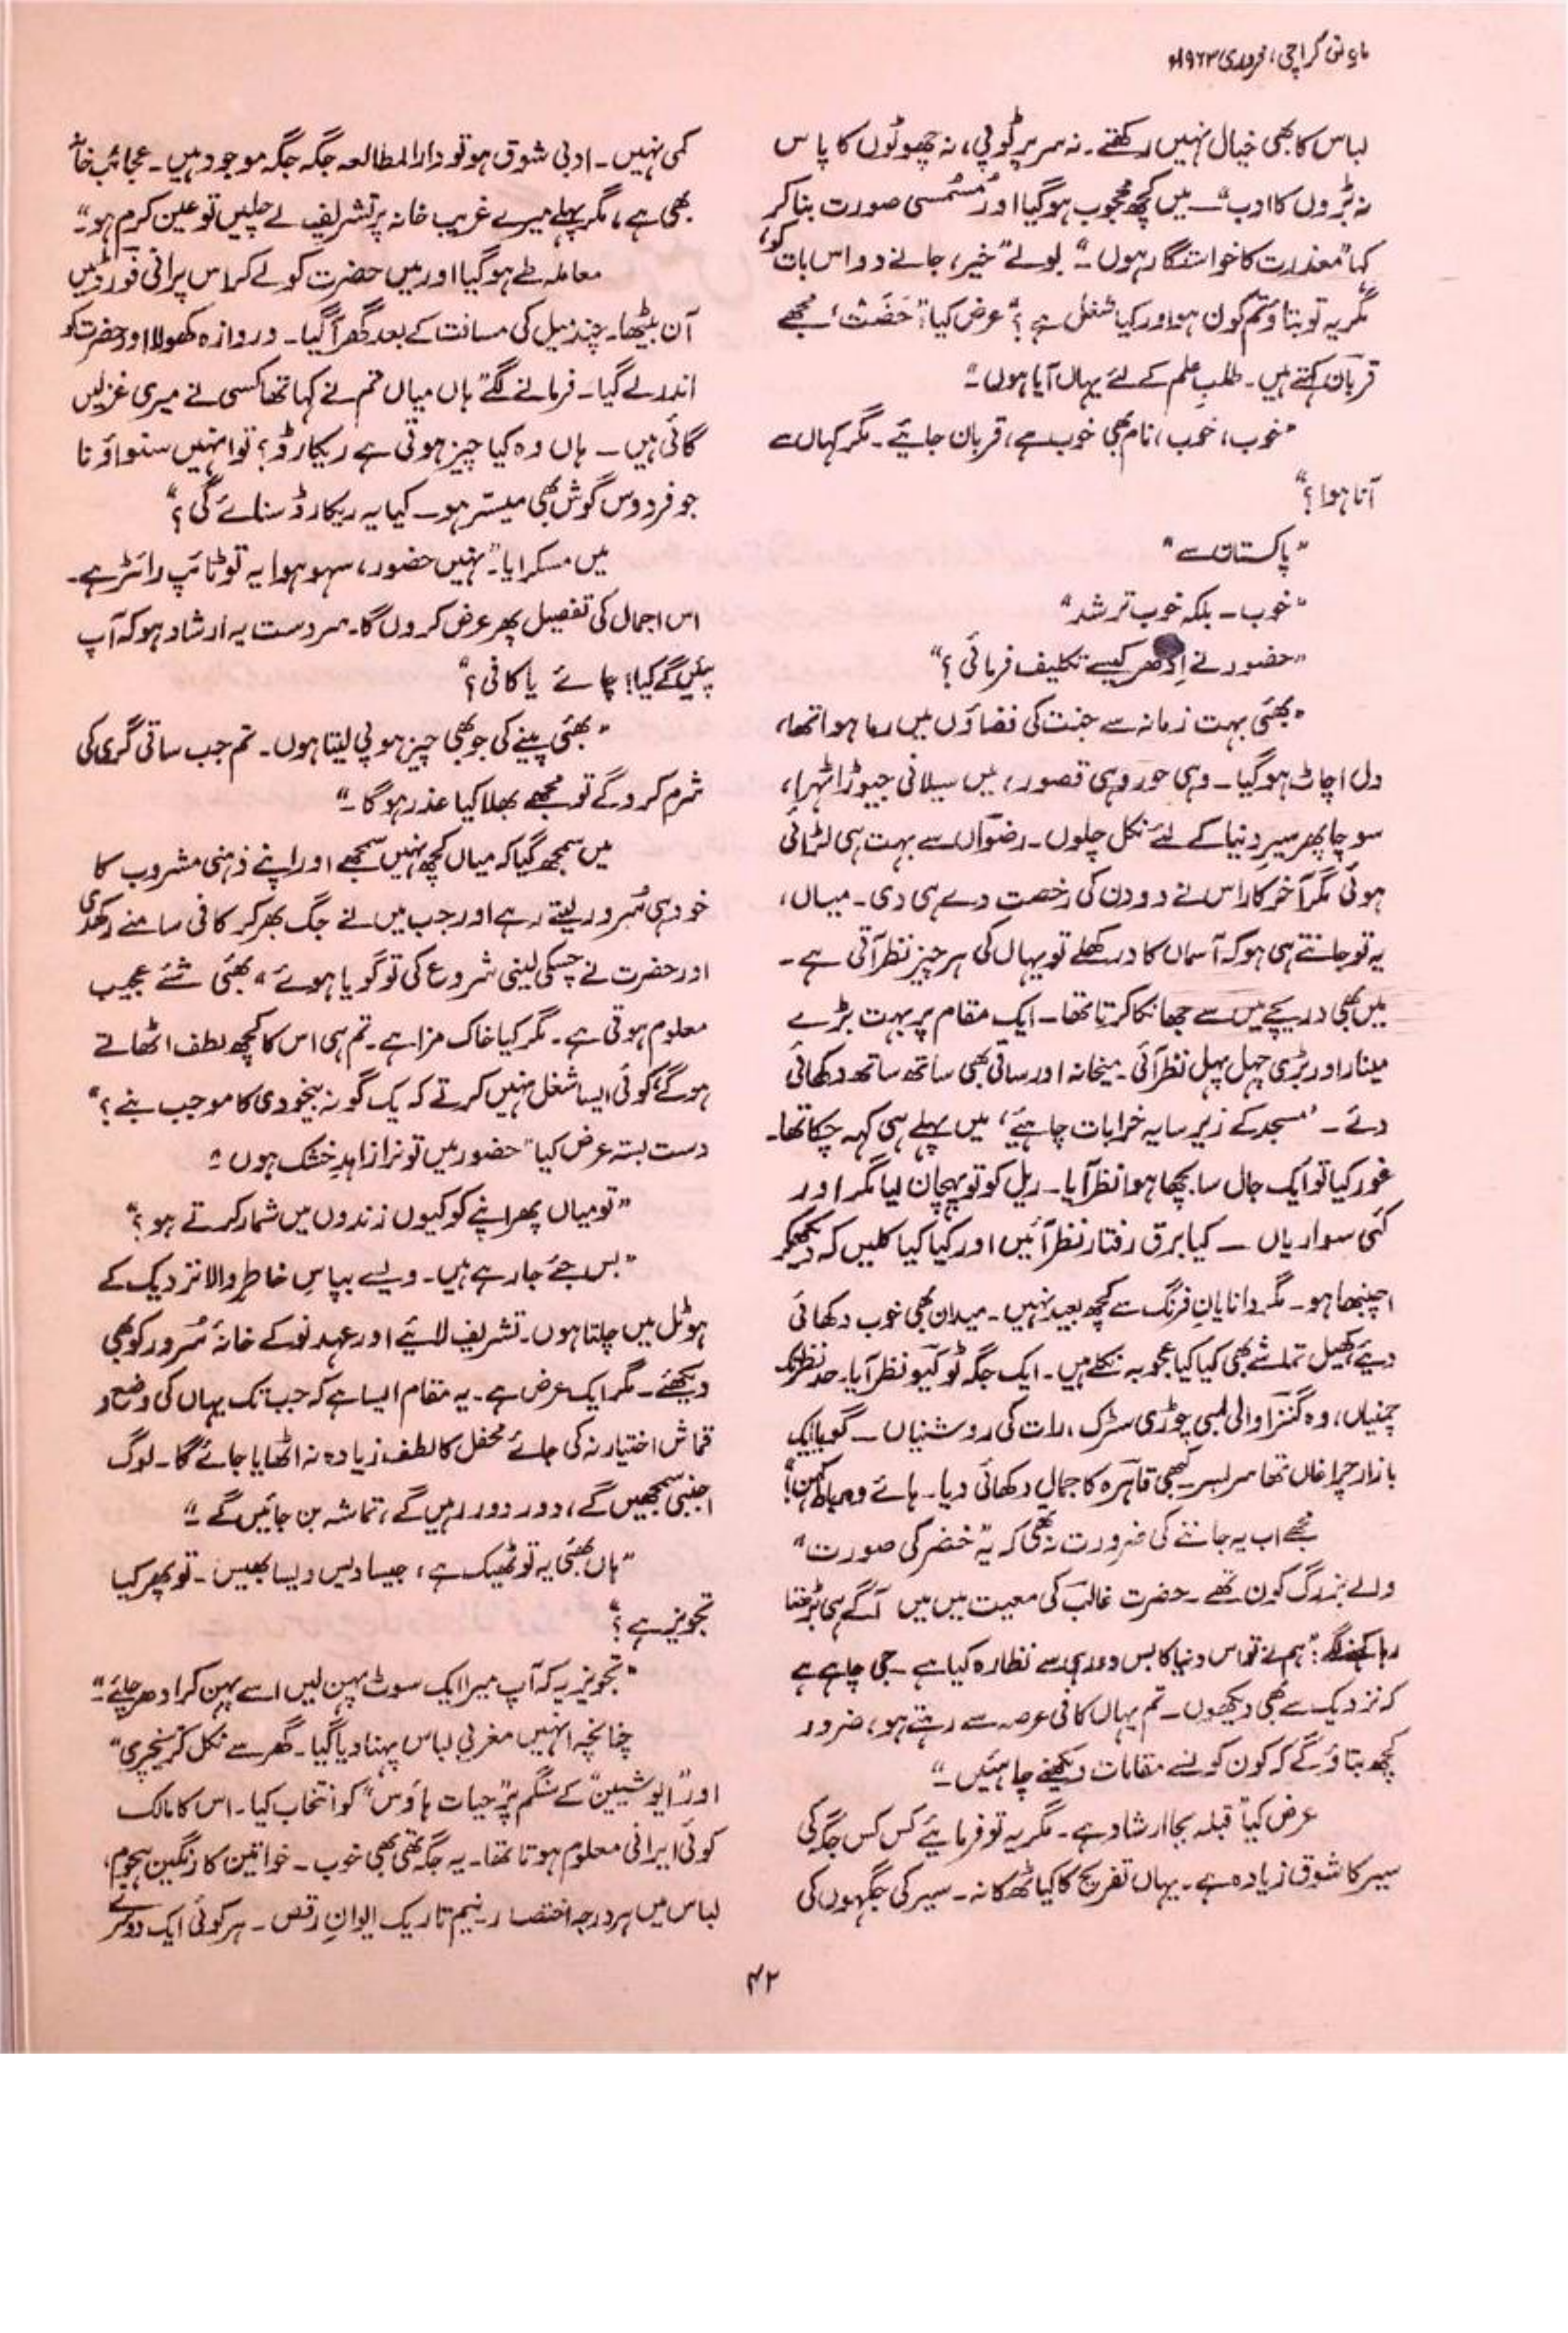 ماہ نو، کراچی، فروری ۱۹۶۳ء
لباس کا بھی خیال نہیں رکھتے۔ نہ سر پر ٹوپی، نہ چھوٹوں کا پاس
نہ بڑوں کا ادب"۔ میں کچھ محجوب ہوگیا اور مُسمُسی صورت بنا کر
کہا "معذرت کا خواستگار ہوں"۔ بولے "خیر، جانے دو اس بات کو،
مگر یہ تو بتاؤ تم کون ہو اور کیا شغل ہے؟" عرض کیا: "حَضَت، مجھے
قربان کہتے ہیں۔ طلبِ علم کے لئے یہاں آیا ہوں"۔
"خوب، خوب، نام بھی خوب ہے، قربان جائیے۔ مگر کہاں سے
آنا ہوا؟"
"پاکستان سے"
"خوب۔ بلکہ خوب تر شد"
"حضور نے اِدھر کیسے تکلیف فرمائی؟"
"بھئی بہت زمانہ سے جنت کی فضاؤں میں رما ہوا تھا،
دل اچاٹ ہوگیا۔ وہی حور وہی قصور، میں سیلانی جیوڑا ٹھہرا،
سوچا پھر سیرِ دنیا کے لئے نکل چلوں۔ رضواں سے بہت ہی لڑائی
ہوئی مگر آخر کار اس نے دو دن کی رخصت دے ہی دی۔ میاں،
یہ تو جانتے ہی ہو کہ آسماں کا در کھلے تو یہاں کی ہر چیز نظر آتی ہے۔
میں بھی دریچے میں سے جھانکا کرتا تھا۔ ایک مقام پر بہت بڑے
مینار اور بڑی چہل پہل نظر آئی۔ میخانہ اور ساقی بھی ساتھ ساتھ دکھائی
دئے۔ 'مسجد کے زیرِ سایہ خرابات چاہئیے' میں پہلے ہی کہہ چکا تھا۔
غور کیا تو ایک جال سا بچھا ہوا نظر آیا۔ ریل کو تو پہچان لیا مگر اور
کئی سواریاں ــ کیا برق رفتار نظر آئیں اور کیا کیا کلیں کہ دیکھکر
اچنبھا ہو۔ مگر دانایانِ فرنگ سے کچھ بعید نہیں۔ میدان بھی خوب دکھائی
دیئے، کھیل تماشے بھی کیا کیا عجوبہ نکلے ہیں۔ ایک جگہ ٹوکیو نظر آیا۔ حد نظر تک
چمنیاں، وہ گنزا والی لمبی چوڑی سڑک، رات کی روشنیاں ــ گویا ایک
بازارِ چراغاں تھا سر بسر۔ کبھی قاہرہ کا جمال دکھائی دیا۔ ہائے وہ
مجھے اب یہ جاننے کی ضرورت نہ تھی کہ یہ "خضر کی صورت"
والے بزرگ کون تھے۔ حضرت غالبؔ کی معیت میں میں آگے ہی بڑھتا
رہا کہنے لگے: "ہم نے تو اس دنیا کا بس دور ہی سے نظارہ کیا ہے۔ جی چاہے ہے
کہ نزدیک سے بھی دیکھوں۔ تم یہاں کافی عرصہ سے رہتے ہو، ضرور
کچھ بتاؤ گے کہ کون کونسے مقامات دیکھنے چاہئیں۔"
عرض کیا "قبلہ بجا ارشاد ہے۔ مگر یہ تو فرمایئے کس کس جگہ کی
سیر کا شوق زیادہ ہے۔ یہاں تفریح کا کیا ٹھکانہ۔ سیر کی جگہوں کی
کمی نہیں۔ ادبی شوق ہو تو دارالمطالعہ جگہ جگہ موجود ہیں۔ عجائب خانہ
بھی ہے، مگر پہلے میرے غریب خانہ پر تشریف لے چلیں تو عین کرم ہو"۔
معاملہ طے ہوگیا اور میں حضرت کو لے کر اس پرانی فورڈ میں
آن بیٹھا۔ چند میل کی مسافت کے بعد گھر آگیا۔ دروازہ کھولا اور حضرت کو
اندر لے گیا۔ فرمانے لگے "ہاں میاں تم نے کہا تھا کسی نے میری غزلیں
گائی ہیں ــ ہاں وہ کیا چیز ہوتی ہے ریکارڈ؟ تو انہیں سنواؤ نا
جو فردوس گوش بھی میسّر ہو۔ کیا یہ ریکارڈ سنائے گی؟"
میں مسکرایا۔ "نہیں حضور، سہو ہوا یہ تو ٹائپ رائٹر ہے۔
اس اجمال کی تفصیل پھر عرض کروں گا۔ سرِدست یہ ارشاد ہو کہ آپ
پئیں گے کیا؛ چائے یا کافی؟"
"بھئی پینے کی جو بھی چیز ہو پی لیتا ہوں۔ تم جب ساقی گری کی
شرم کرو گے تو مجھے بھلا کیا عذر ہوگا۔"
میں سمجھ گیا کہ میاں کچھ نہیں سمجھے اور اپنے ذہنی مشروب کا
خود ہی سُرور لیتے رہے اور جب میں نے جگ بھر کر کافی سامنے رکھدی
اور حضرت نے چسکی لینی شروع کی تو گویا ہوئے "بھئی شئے عجیب
معلوم ہوتی ہے۔ مگر کیا خاک مزا ہے۔ تم ہی اس کا کچھ لطف اٹھاتے
ہوگے، کوئی ایسا شغل نہیں کرتے کہ یک گونہ بیخودی کا موجب بنے؟"
دست بستہ عرض کیا "حضور میں تو نرا زاہدِ خشک ہوں"۔
"تو میاں پھر اپنے کو کیوں زندوں میں شمار کرتے ہو؟"
"بس جئے جا رہے ہیں۔ ویسے بپاسِ خاطرِ والا نزدیک کے
ہوٹل میں چلتا ہوں۔ تشریف لائیے اور عہدِ نو کے خانۂ سُرور کو بھی
دیکھئے۔ مگر ایک عرض ہے۔ یہ مقام ایسا ہے کہ جب تک یہاں کی وضع و
قماش اختیار نہ کی جائے محفل کا لطف زیادہ نہ اٹھایا جائے گا۔ لوگ
اجنبی سمجھیں گے، دور دور رہیں گے، تماشہ بن جائیں گے"۔
"ہاں بھئی یہ تو ٹھیک ہے، جیسا دیس ویسا بھیس۔ تو پھر کیا
تجویز ہے؟"
"تجویز یہ کہ آپ میرا ایک سوٹ پہن لیں اسے پہن کر ادھر چلئے"۔
چنانچہ انہیں مغربی لباس پہنا دیا گیا۔ گھر سے نکل کر "نچری"
اور "ایوشیین" کے سنگم پر "حیات ہاؤس" کو انتخاب کیا۔ اس کا مالک
کوئی ایرانی معلوم ہوتا تھا۔ یہ جگہ تھی بھی خوب۔ خواتین کا رنگین ہجوم،
لباس میں ہر درجہ اختصار۔ نیم تاریک ایوانِ رقص۔ ہر کوئی ایک دوسرے
۴۲